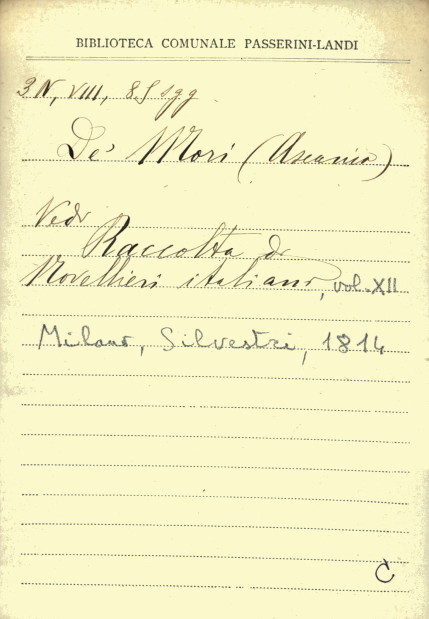 BIBLIOTECA COMUNALE PASSERINI-LANDI
3 N, VIII, 8.5 sgg
De' Mori (Ascanio)
Vedi
Raccolta di
Novellieri italiani, vol. XII
Milano, Silvestri, 1814
C